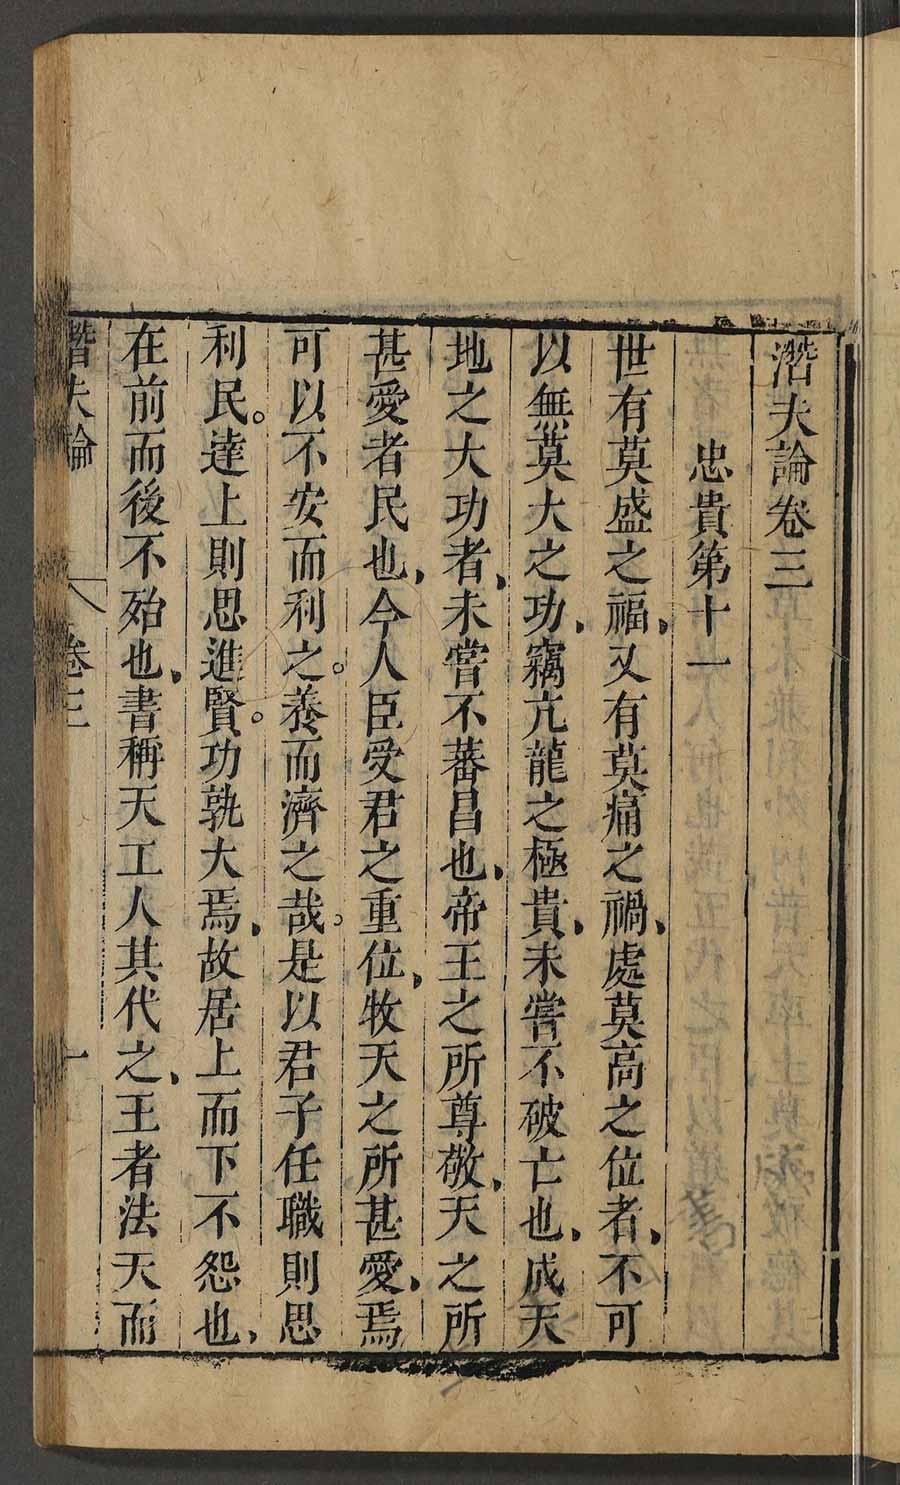 潛夫論卷三
忠貴第十一
世有莫盛之福、又有莫痛之禍、處莫高之位者、不可
以無莫大之功、竊亢龍之極貴、未嘗不破亡也、成天
地之大功者、未嘗不蕃昌也、帝王之所尊敬、天之所
甚愛者民也、今人臣受君之重位、牧天之所甚愛、焉
可以不安而利之。養而濟之哉。是以君子任職則思
利民。達上則思進賢。功孰大焉、故居上而下不怨也、
在前而後不殆也、書稱天工人其代之、王者法天而
潛夫論 卷三 一